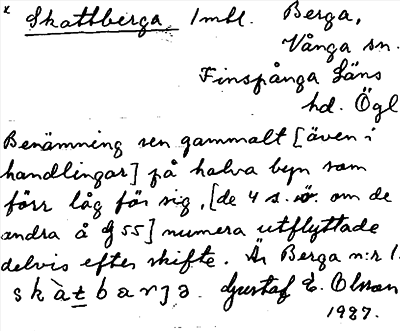 x Skattberga, 1 mtl. Berga,
Vånga sn.
Finspånga Läns
hd. Ögl
Benämning sen gammalt [även i
handlingar] på halva byn som
förr låg för sig, [de 4 s. ö. om de
andra å § 55] numera utflyttade
delvis efter skifte. Är Berga n:r 1.
Gustaf E. Olsson
1927.